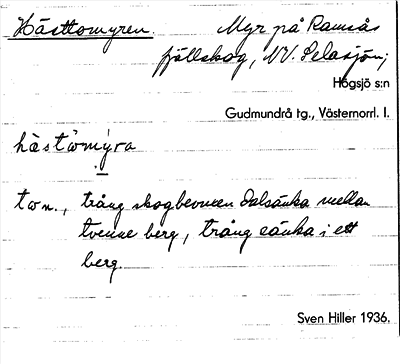 Hästtomyren. Myr på Ramsås
fjällskog, NV. Selasjön;
Högsjö s:n
Gudmundrå tg., Västernorrl. l.
hästωmýra
tωn., trång skogbevuxen dalsänka mellan
tvenne berg, trång sänka i ett
berg
Sven Hiller 1936.